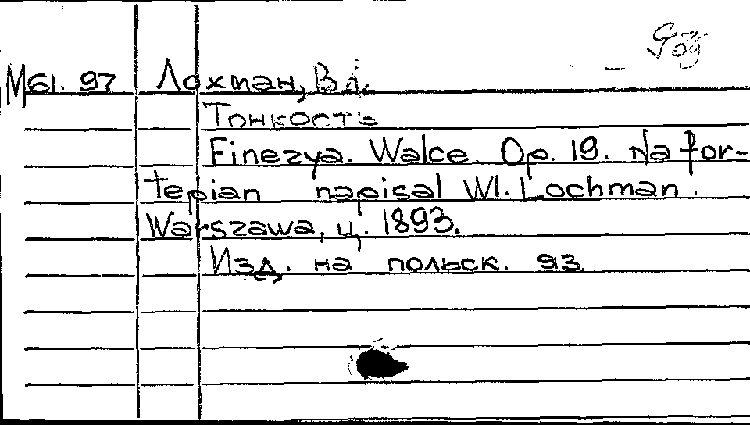 М61.97 Лохман, Вл.
Тонкость
Finezya. Walce. Op. 19. Na for-
tepian napisal Wl. Lochman.
Warszawa, ц. 1893.
Изд. на польск. яз.